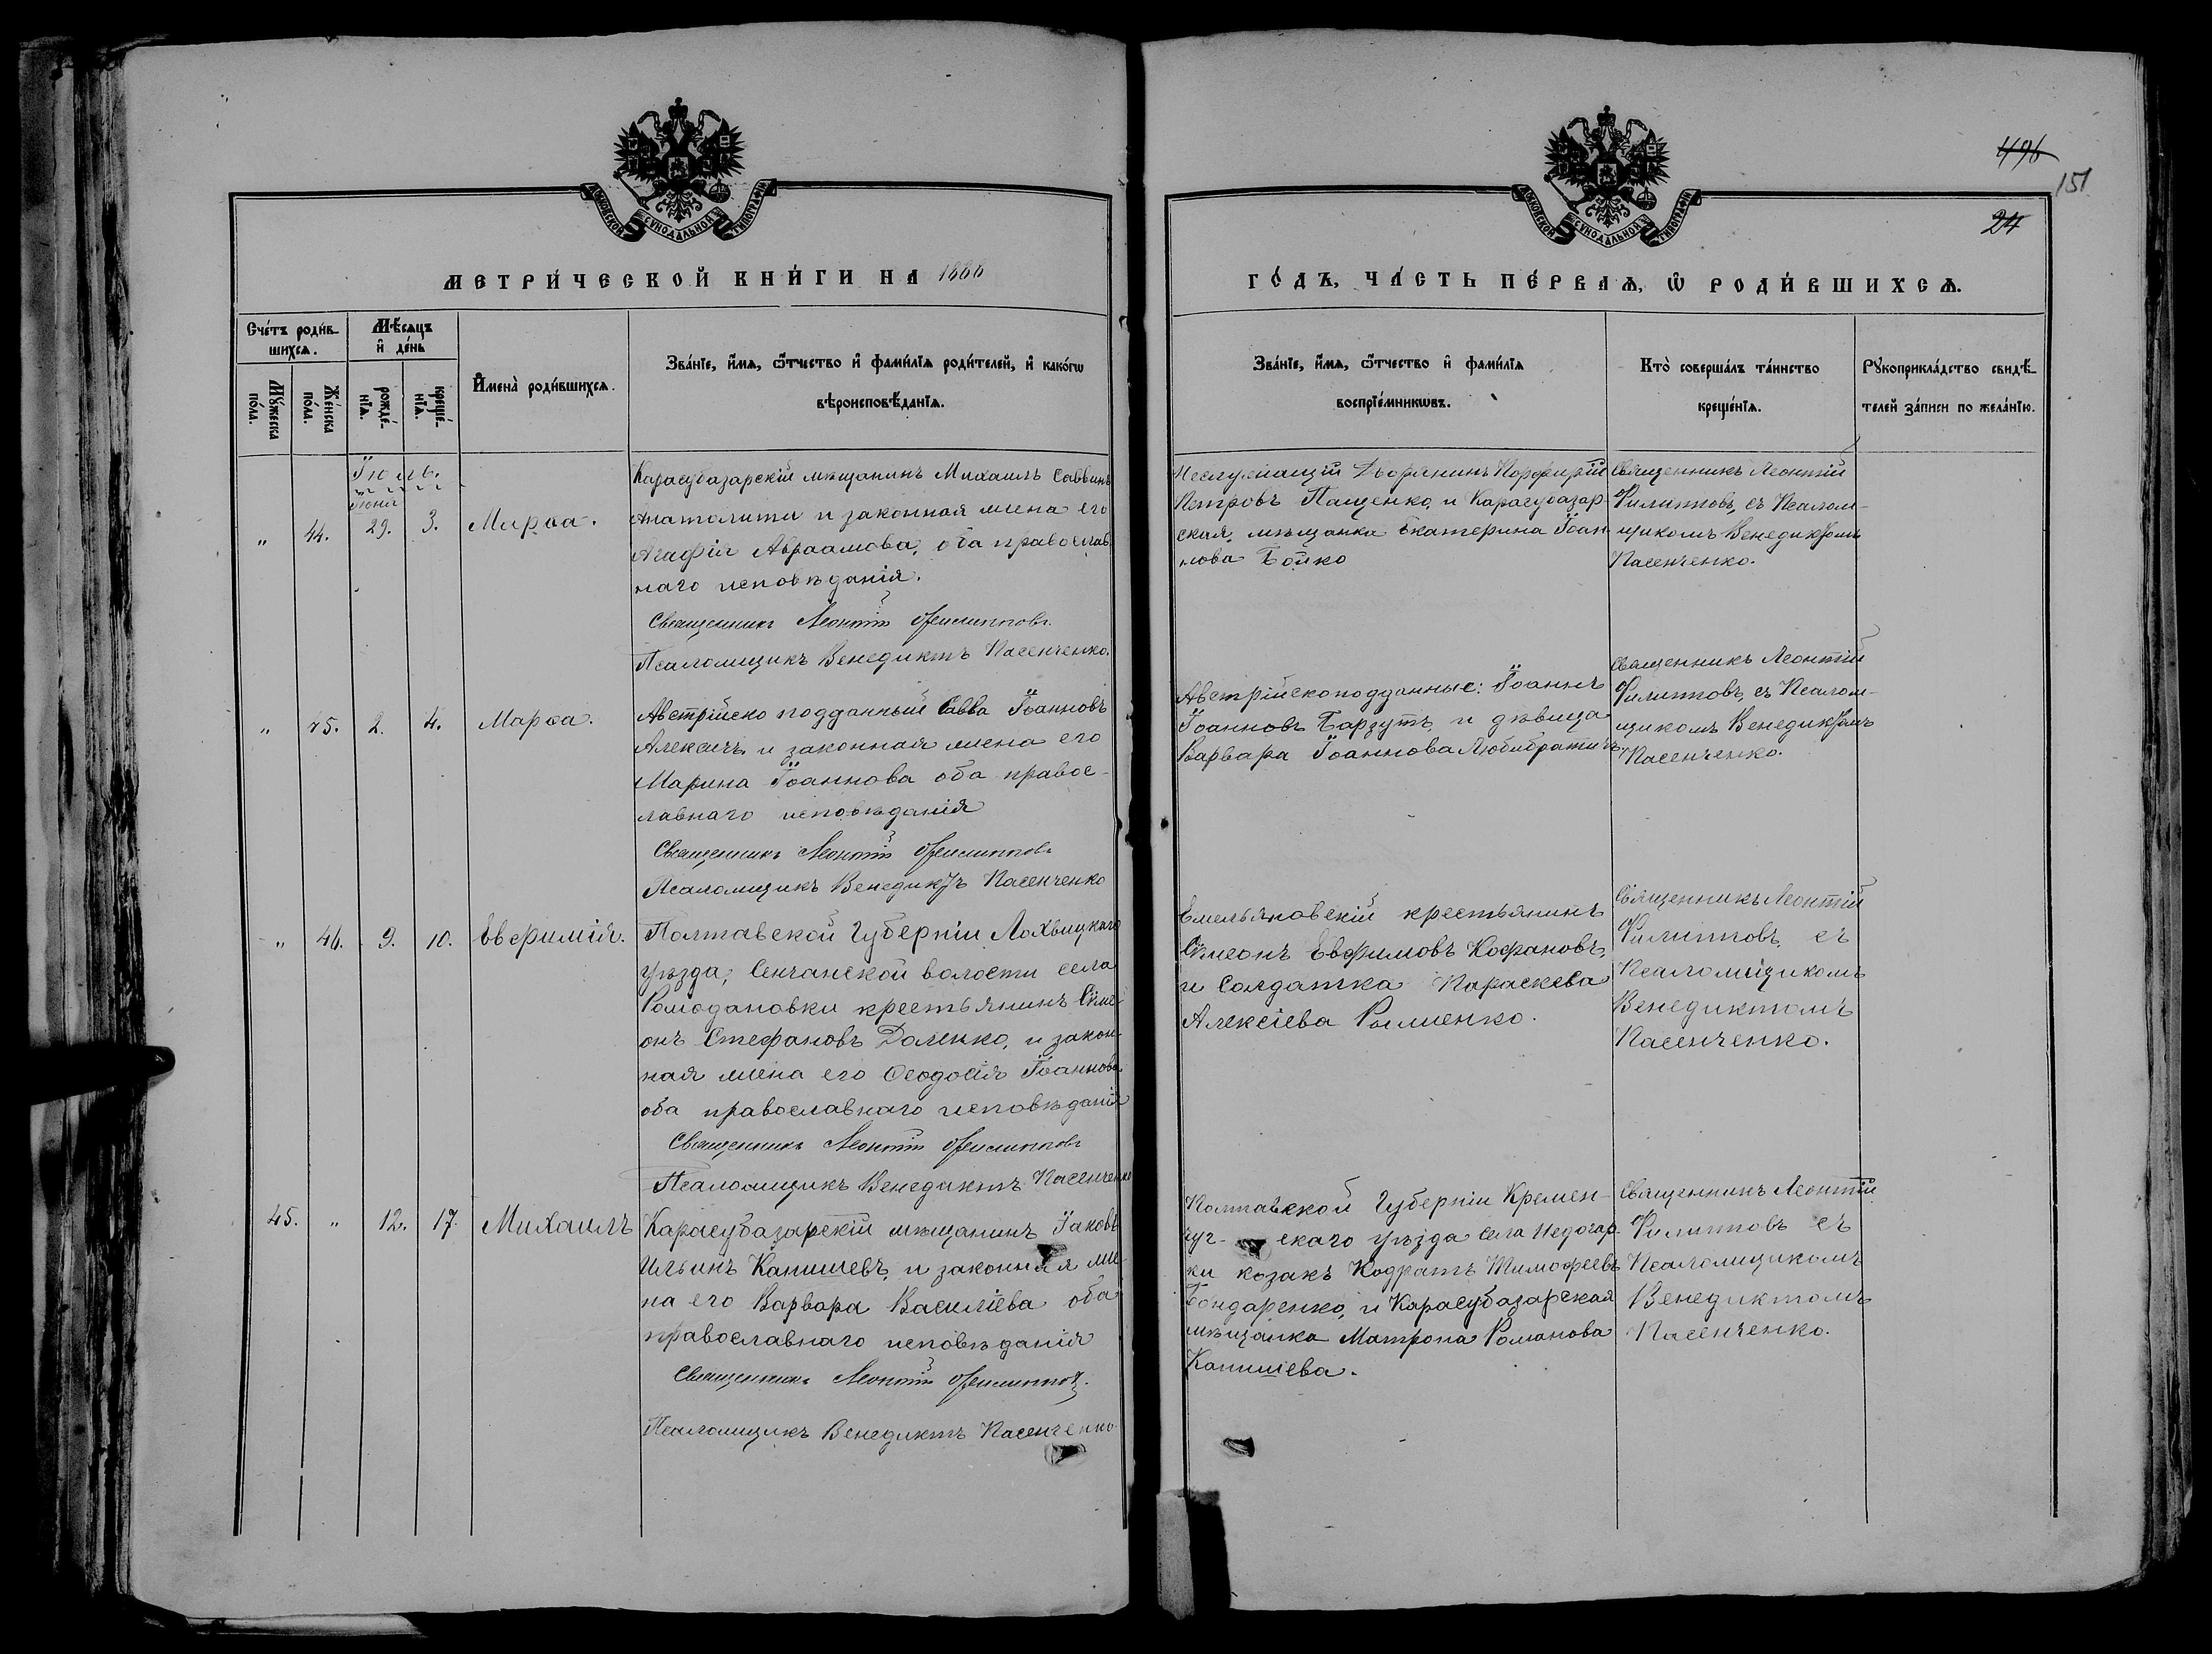 496
151
24
МОСКОВСКОЙ СѴНОДАЛЬНОЙ ТИПОГРАФІИ
МОСКОВСКОЙ СѴНОДАЛЬНОЙ ТИПОГРАФІИ
МЕТРИ́ЧЕСКОЙ КНИ́ГИ НА 1886
ГО́ДЪ, ЧА́СТЬ ПЕ́РВАѦ, Ѡ РОДИ́ВШИХСѦ.
Сче́тъ роди́в-
шихсѧ.
Мѣ́сѧцъ
и҆ де́нь
Мꙋ́жеска
по́ла.
Же́нска
по́ла.
рожде́-
нїѧ.
креще́-
нїѧ.
И҆мена̀ роди́вшихсѧ.
Зва́нїе, и҆́мѧ, ѻ҆́тчество и҆ фами́лїѧ роди́телей, и҆ како́гѡ
вѣроисповѣ́данїѧ.
Зва́нїе, и҆́мѧ, ѻ҆́тчество и҆ фами́лїѧ
воспрїе́мникѡвъ.
Кто̀ соверша́лъ та́инство
креще́нїѧ.
Рꙋкоприкла́дство свидѣ́-
телей за́писи по жела́нїю.
Іюль.
Іюня
" 44. 29. 3. Марѳа.
Карасубазарскій мѣщанинъ Михаилъ Саввинъ
Анатолити и законная жена его
Агафія Авраамова, оба православ-
наго исповѣданія.
Священникъ Леонтій Филипповъ.
Псаломщикъ Венедиктъ Пасенченко.
Неслужащій Дворянинъ Порфирій
Петровъ Пащенко, и Карасубазар-
ская, мѣщанка Екатерина Іоан-
нова Бойко
Священникъ Леонтій
Филипповъ, съ Псалом-
щикомъ Венедиктомъ
Пасенченко.
" 45. 2. 4. Марѳа.
Австрійско подданный Савва Іоанновъ
Алексичъ и законная жена его
Марина Іоаннова оба правос-
лавнаго исповѣданія
Священникъ Леонтій Филипповъ
Псаломщикъ Венедиктъ Пасенченко
Австрійскоподданные: Іоаннъ
Іоанновъ Барзутъ, и дѣвица
Варвара Іоаннова Любибратичъ
Священникъ Леонтій
Филипповъ, съ Псалом-
щикомъ Венедиктомъ
Пасенченко.
" 46. 9. 10. Евфимія.
Полтавской Губерніи Лохвицкаго
уѣзда, Сенчанской волости села
Ромодановки крестьянинъ Симе-
онъ Стефановъ Доленко, и закон-
ная жена его Ѳеодосія Іоаннова
оба православнаго исповѣданія
Священникъ Леонтій Филипповъ
Псаломщикъ Венедиктъ Пасенченко
Емельяновскій крестьянинъ
Симеонъ Евфимовъ Кофановъ,
и Солдатка Параскева
Алексіева
Священникъ Леонтій
Филипповъ, съ
Псаломщикомъ
Венедиктомъ
Пасенченко.
45. " 12. 17. Михаилъ
Карасубазарскій мѣщанинъ Іаковъ
Ильинъ Капишевъ, и законная же-
на его Варвара Василіева оба
православнаго исповѣданія
Священникъ Леонтій Филипповъ.
Псаломщикъ Венедиктъ Пасенченко
Полтавской Губерніи Кремен-
чуг- скаго уѣзда села Недогар-
ки козакъ Кодратъ Тимофеевъ
Бондаренко, и Карасубазарская
мѣщанка Матрона Романова
Капишева.
Священникъ Леонтій
Филипповъ съ
Псаломщикомъ
Венедиктомъ
Пасенченко.